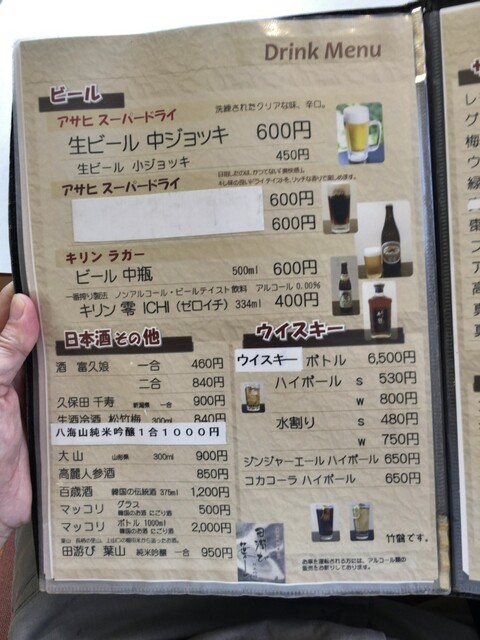 Drink Menu
ビール
アサヒ スーパードライ
洗練されたクリアな味、辛口。
生ビール 中ジョッキ 600円
生ビール 小ジョッキ 450円
アサヒ スーパードライ
600円
600円
キリン ラガー
ビール 中瓶 500ml 600円
一番搾り製法 ノンアルコール・ビールテイスト飲料 アルコール 0.00%
キリン 零 ICHI（ゼロイチ） 334ml 400円
日本酒 その他
酒 富久娘 一合 460円
二合 840円
久保田 千寿 新潟県 一合 900円
生酒冷酒 松竹梅 300ml 840円
八海山純米吟醸1合1000円
大山 山形県 300ml 900円
高麗人参酒 850円
百歳酒 韓国の伝統酒 375ml 1,200円
マッコリ グラス 韓国のお酒 にごり酒 500円
マッコリ ボトル 1000ml 韓国のお酒 にごり酒 2,000円
田遊び 葉山 純米吟醸 一合 950円
ウイスキー
ウイスキー ボトル 6,500円
ハイボール S 530円
W 800円
水割り S 480円
W 750円
ジンジャーエール ハイボール 650円
コカコーラ ハイボール 650円
竹鶴です。
お車を運転される方には、アルコール類の
販売をお断りしております。